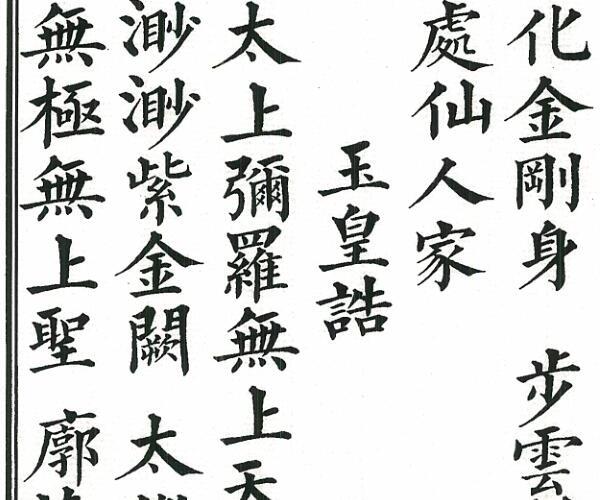 化金剛身 步雲
處仙人家
玉皇誥
太上彌羅無上天
渺渺紫金闕 太
無極無上聖 廓